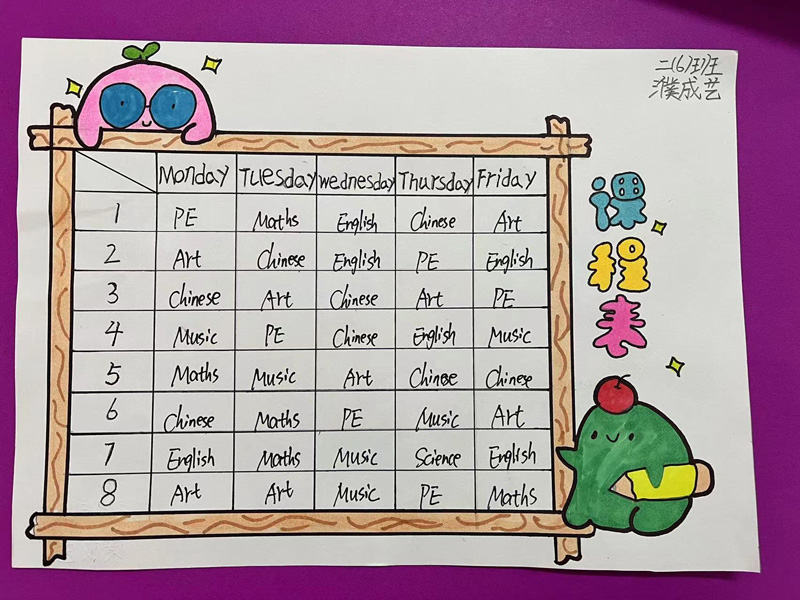 二(6)班
濮成艺
课程表
Monday Tuesday Wednesday Thursday Friday
1 PE Maths English Chinese Art
2 Art Chinese English PE English
3 Chinese Art Chinese Art PE
4 Music PE Chinese English Music
5 Maths Music Art Chinese Chinese
6 Chinese Maths PE Music Art
7 English Maths Music Science English
8 Art Art Music PE Maths